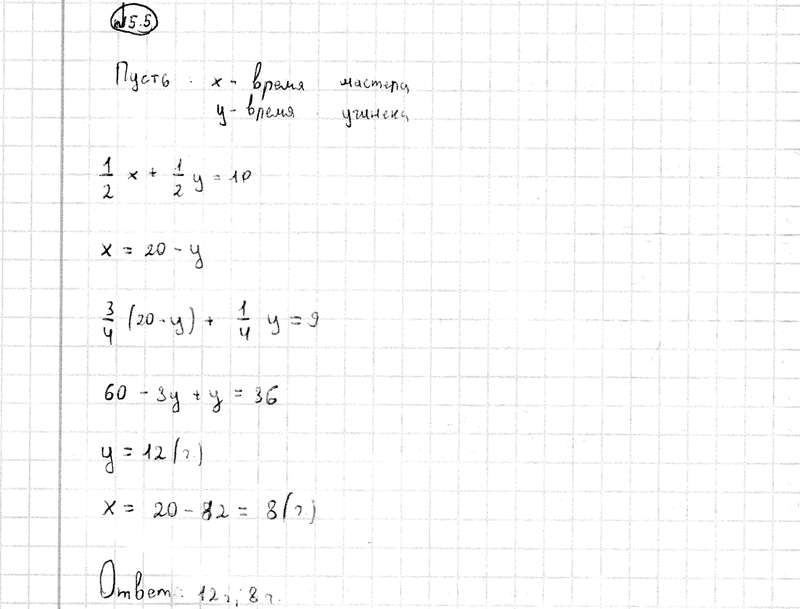 № 5.5
Пусть x - время мастера
y - время ученика
1/2 x + 1/2 y = 10
x = 20 - y
3/4 (20 - y) + 1/4 y = 9
60 - 3y + y = 36
y = 12 (ч)
x = 20 - 12 = 8 (ч)
Ответ: 12 ч, 8 ч.